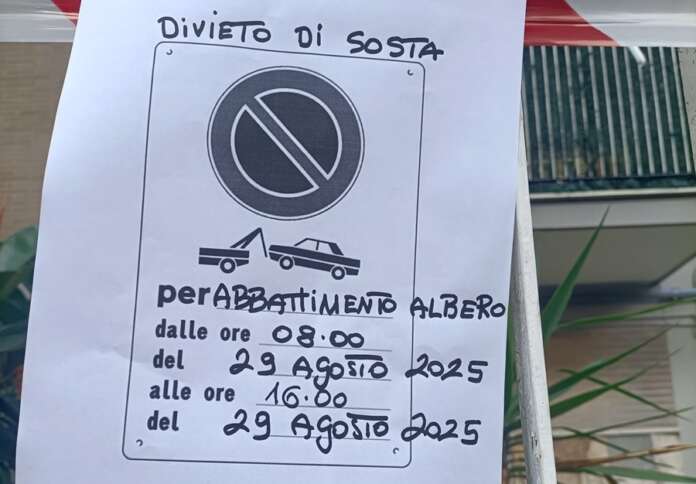 DiViETO Di SOSTA
per ABBATTiMENTO ALBERO
dalle ore 08.00
del 29 AgOSTO 2025
alle ore 16.00
del 29 AgOSTO 2025